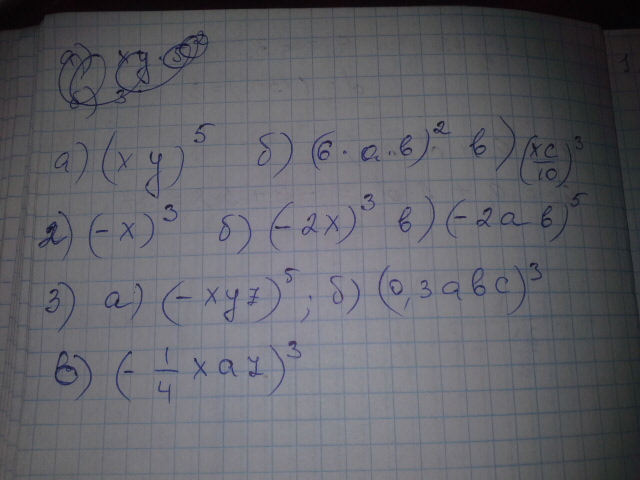 xy
3
а) (xy)⁵ б) (6·a·в)² в) (xc/10)³
2) (-x)³ б) (-2x)³ в) (-2aв)⁵
3) а) (-xyz)⁵; б) (0,3aвc)³
в) (-1/4 xaz)³